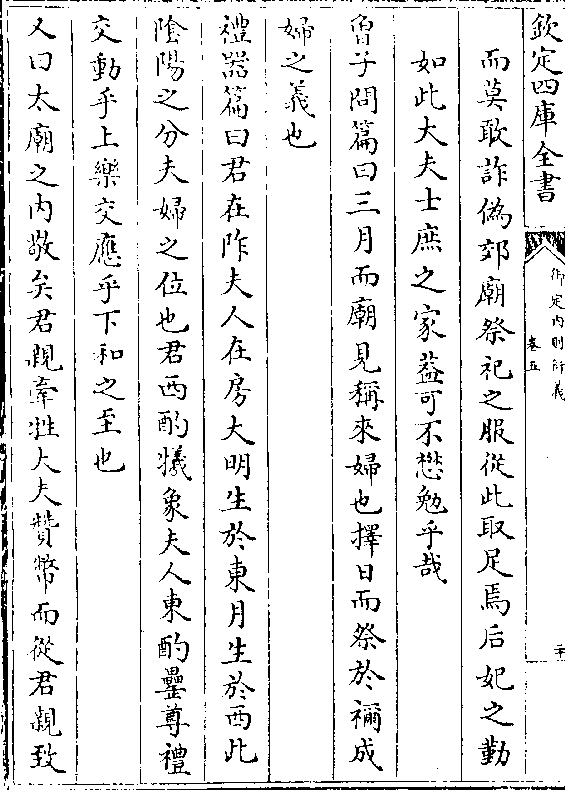 欽定四庫全書
御定內則衍義
卷五
二十
而莫敢詐偽郊廟祭祀之服從此取足焉后妃之勤
如此大夫士庶之家葢可不懋勉乎哉
曾子問篇曰三月而廟見稱來婦也擇日而祭於禰成
婦之義也
禮器篇曰君在阼夫人在房大明生於東月生於西此
陰陽之分夫婦之位也君西酌犧象夫人東酌罍尊禮
交動乎上樂交應乎下和之至也
又曰太廟之內敬矣君親牽牲大夫贊幣而從君親致